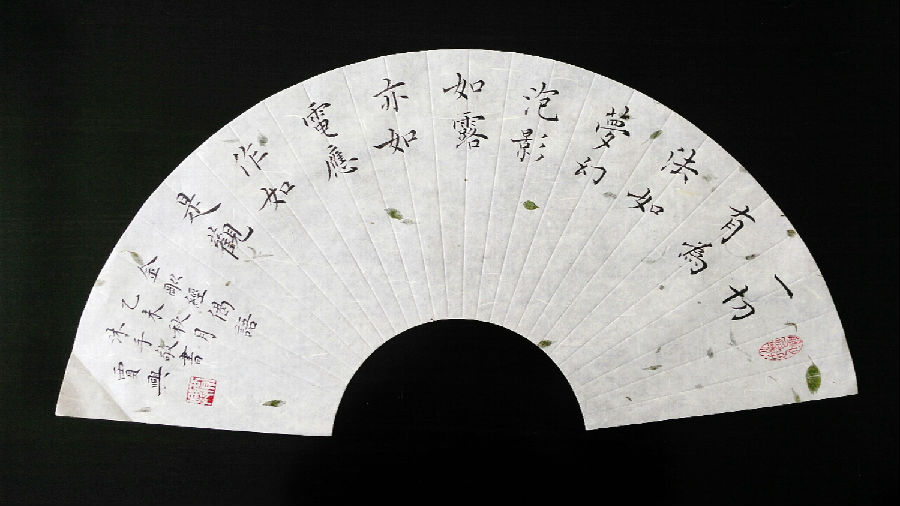 一切
有為
法如
夢幻
泡影
如露
亦如
電應
作如
是觀
金剛經偈語
乙未秋月
沐手敬書
賈興